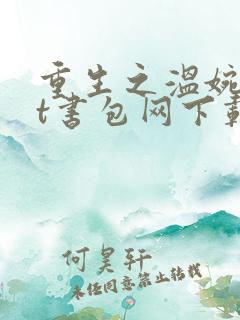 重生之温婉
t书包网下载
何昊轩
未经同意禁止转载